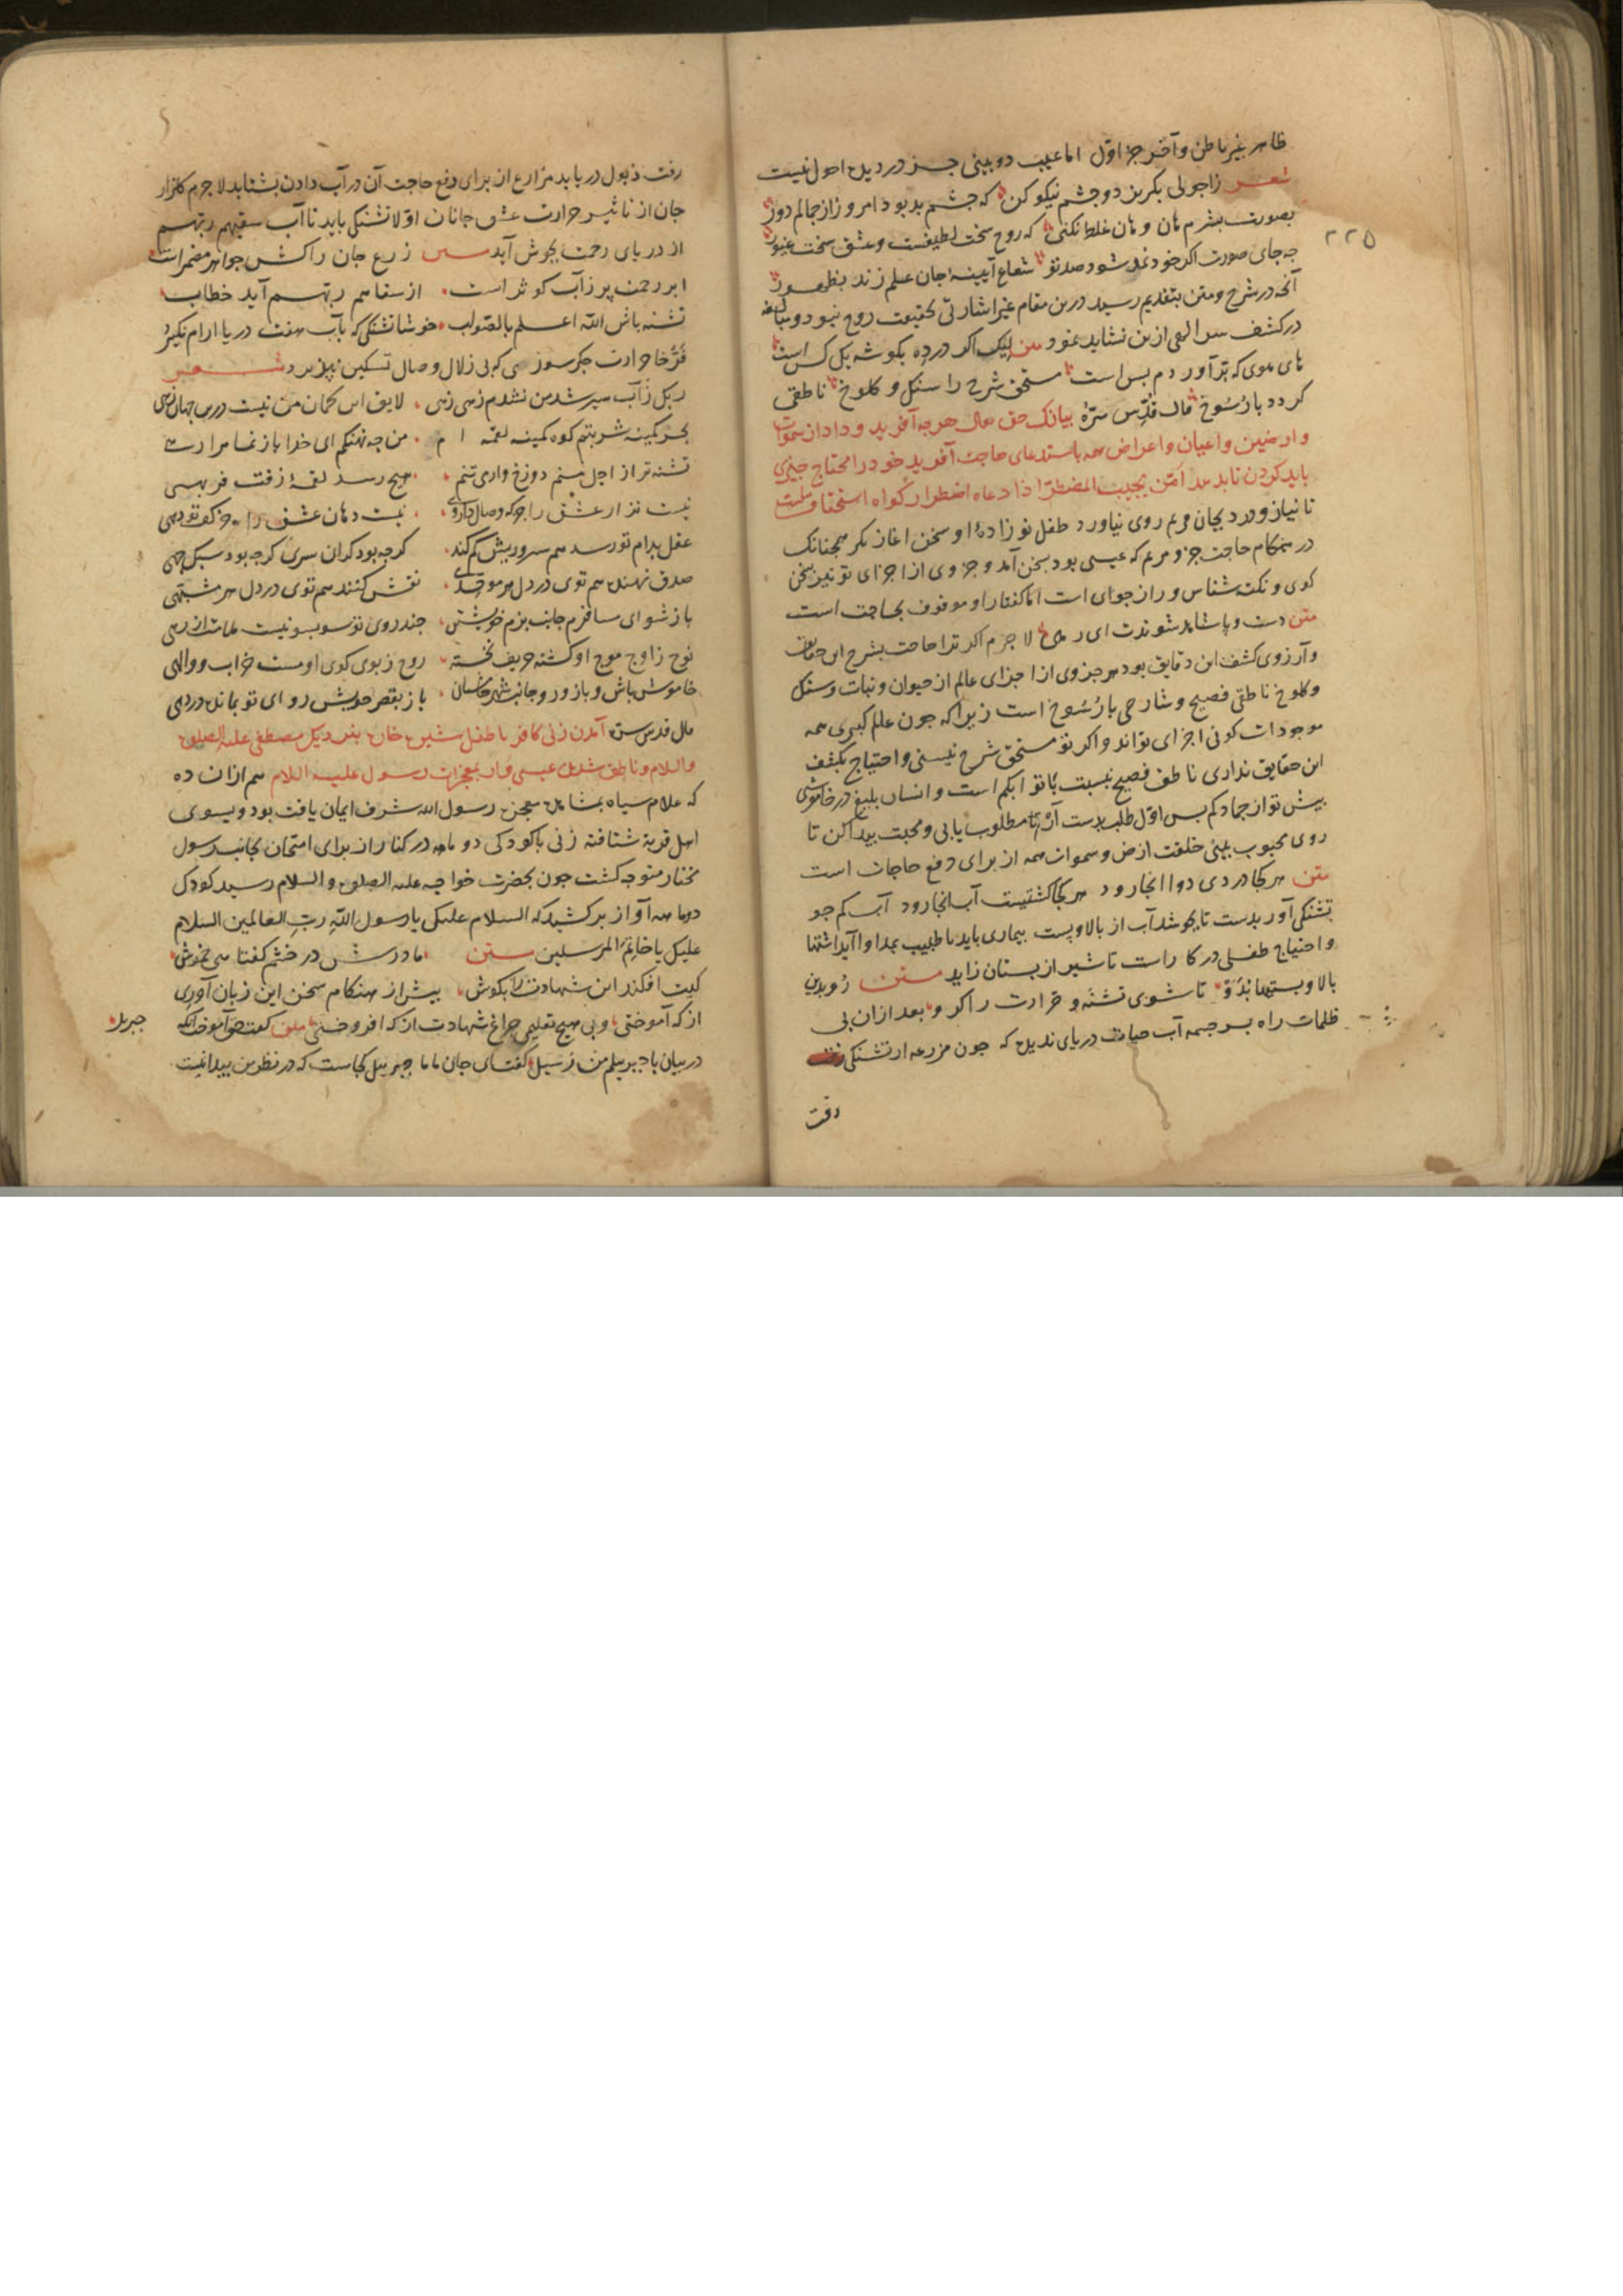 ظاهر غیر باطن و آخر جز اوّل اما عیب دو بینی جز در دیدهٔ احول نیست
شعر زاحولی بکریز دو چشم نیکو کن که چشم بد بود امروز از جمالم دور
بصورت بشرم هان و هان غلط نکنی که روح سخت لطیفست و عشق سخت غیور
چه جای صورت اکر خود نمد شود صد تو شعاع آیینهٔ جان علم زند بظهور
آنچه در شرح و متن بتقدیم رسید درین مقام غیر اشارتی بحقیقت روح نبود و مبالغه
در کشف سر الهی ازین نشاید نمود متن لیک اکر در ده بکوشه یک کس است
های هوی که برآورد دم بس است مستحق شرح را سنک و کلوخ ناطقی
کردد با رسوخ قال قُدِّس سرّهُ بیان آنک حق تعالی هرچه آفرید و داد از سموات
و ارضین و اعیان و اعراض همه باستدعای حاجت آفرید خود را محتاج چیزی
باید کردن تا بدهد امّن یجیب المضطرّ اذا دعاه اضطرار کواه استحقاقست
تا نیاز و درد بجان مریم روی نیاورد طفل نو زادهٔ او سخن آغاز نکرد همچنانک
در هنکام حاجت جزو مریم که عیسی بود بسخن آمد و جزوی از اجزای تو نیز سخن
کوی و نکته شناس و راز جوای است اما کفتار او موقوف بحاجت است
متن دست و پا شاهد شوندت ای رهی لا جرم اکر ترا حاجت بشرح این حقایق
و آرزوی کشف این دقایق بود هر جزوی از اجزای عالم از حیوان و نبات و سنک
و کلوخ ناطقی فصیح و شارحی با رُسُوخ است زیرا که چون علم کبری همه
موجودات کونی اجزای تواند و اکر تو مستحق شرح نیستی و احتیاج بکشف
این حقایق نداری ناطق فصیح نسبت با تو ابکم است و انسان بلیغ در خاموشی
پیش تو از جماد کم پس اوّل طلب بدست آر تا مطلوب یابی و محبت پیدا کن تا
روی محبوب بینی خلقت ارض و سموات همه از برای دفع حاجات است
متن هر کجا دردی دوا آنجا رود هر کجا کشتیست آب آنجا رود آب کم جو
تشنکی آور بدست تا بجوشد آب از بالا و پست بیماری باید تا طبیب بمداوا آید اشتها
و احتیاج طفلی در کار است تا شیر از پستان زاید متن رو بدین
بالا و پستیها بدو تا شوی تشنه و حرارت را کرو بعد ازان بی
ظلمات راه بسرچشمه آب حیات دریای ندیده که چون مزرعه از تشنکی
رفت
۲۲۵
رفت ذبول دریابد مزارع از برای دفع حاجت آن در آب دادن بشتابد لا جرم کلزار
جان از تاثیر حرارت عشق جانان اوّلا تشنکی باید تا آب سقیهم ربهم
از دریای رحمت بجوش آید متن زرع جان را کش جواهر مضمراست
ابر رحمت پر ز آب کوثر است از سقاهم ربهم آید خطاب
تشنه باش اللّه اعلم بالصّواب خوشا تشنکی که بآب هفت دریا ارام نکیرد
فرّخا حرارت جکرسوزی که بی زلال وصال تسکین نپذیرد شعر
زین کل ز آب سیر شد من نشدم زهی زهی لایق این کمان من نیست درین جهان زهی
بحر کمینه شربتم کوه کمینه لقمه ام من چه نهنکم ای خدا باز نما مرا رهی
تشنه تر از اجل منم دوزخ وار می تنم هیچ رسد لقمهٔ زفت فربهی
نیست نزار عشق را جز که وصال داروی نیست دهان عشق را جز کف تو دهی
عقل بدام تو رسد هم سر و ریش کم کند کرچه بود کران سری کرچه بود سبک جهی
صدق نهنده هم توی در دل هر موحدی نقش کننده هم توی در دل هر مشبهی
باز شو ای مسافرم جانب بزم خویشتن چند روی تو سو بسو نیست علامت از رهی
نوح ز اوج موج او کشته حریف تخته روح ز بوی کوی او مست خراب و والهی
خاموش باش و باز رو جانب شهر خامشان باز بقصر خویش رو ای تو بمانده در دهی
قال قدس سره آمدن زن کافر با طفل شیر خاره بنزدیک مصطفی علیه الصلوة
والسلام و ناطق شدن عیسی وار بمعجزات رسول علیه السلام هم ازان ده
که غلام سیاه بمشاهدهٔ معجزه رسول الله شرف ایمان یافت بود و بسوی
اهل قریة شتافته زنی با کودکی دو ماهه در کنار از برای امتحان بجانب رسول
مختار متوجه کشت چون بحضرت خواجه علیه الصلوة والسلام رسید کودک
دو ماهه آواز برکشید که السلام علیک یا رسول اللّهِ ربِّ العالمین السلام
علیک یا خاتِمَ المرسلین متن مادرش در خشم کفتا هی خموش
کیت افکند این شهادت را بکوش پیش از هنکام سخن این زبان آوری
از که آموختی و بی هیچ تعلیمی چراغ شهادت از که افروختی متن کفت حق آموخت آنکه
جبریل
در بیان با جبرییلم من رسیل کفت ای جان ماما جبرییل کجاست که در نظر من پیدا نیست